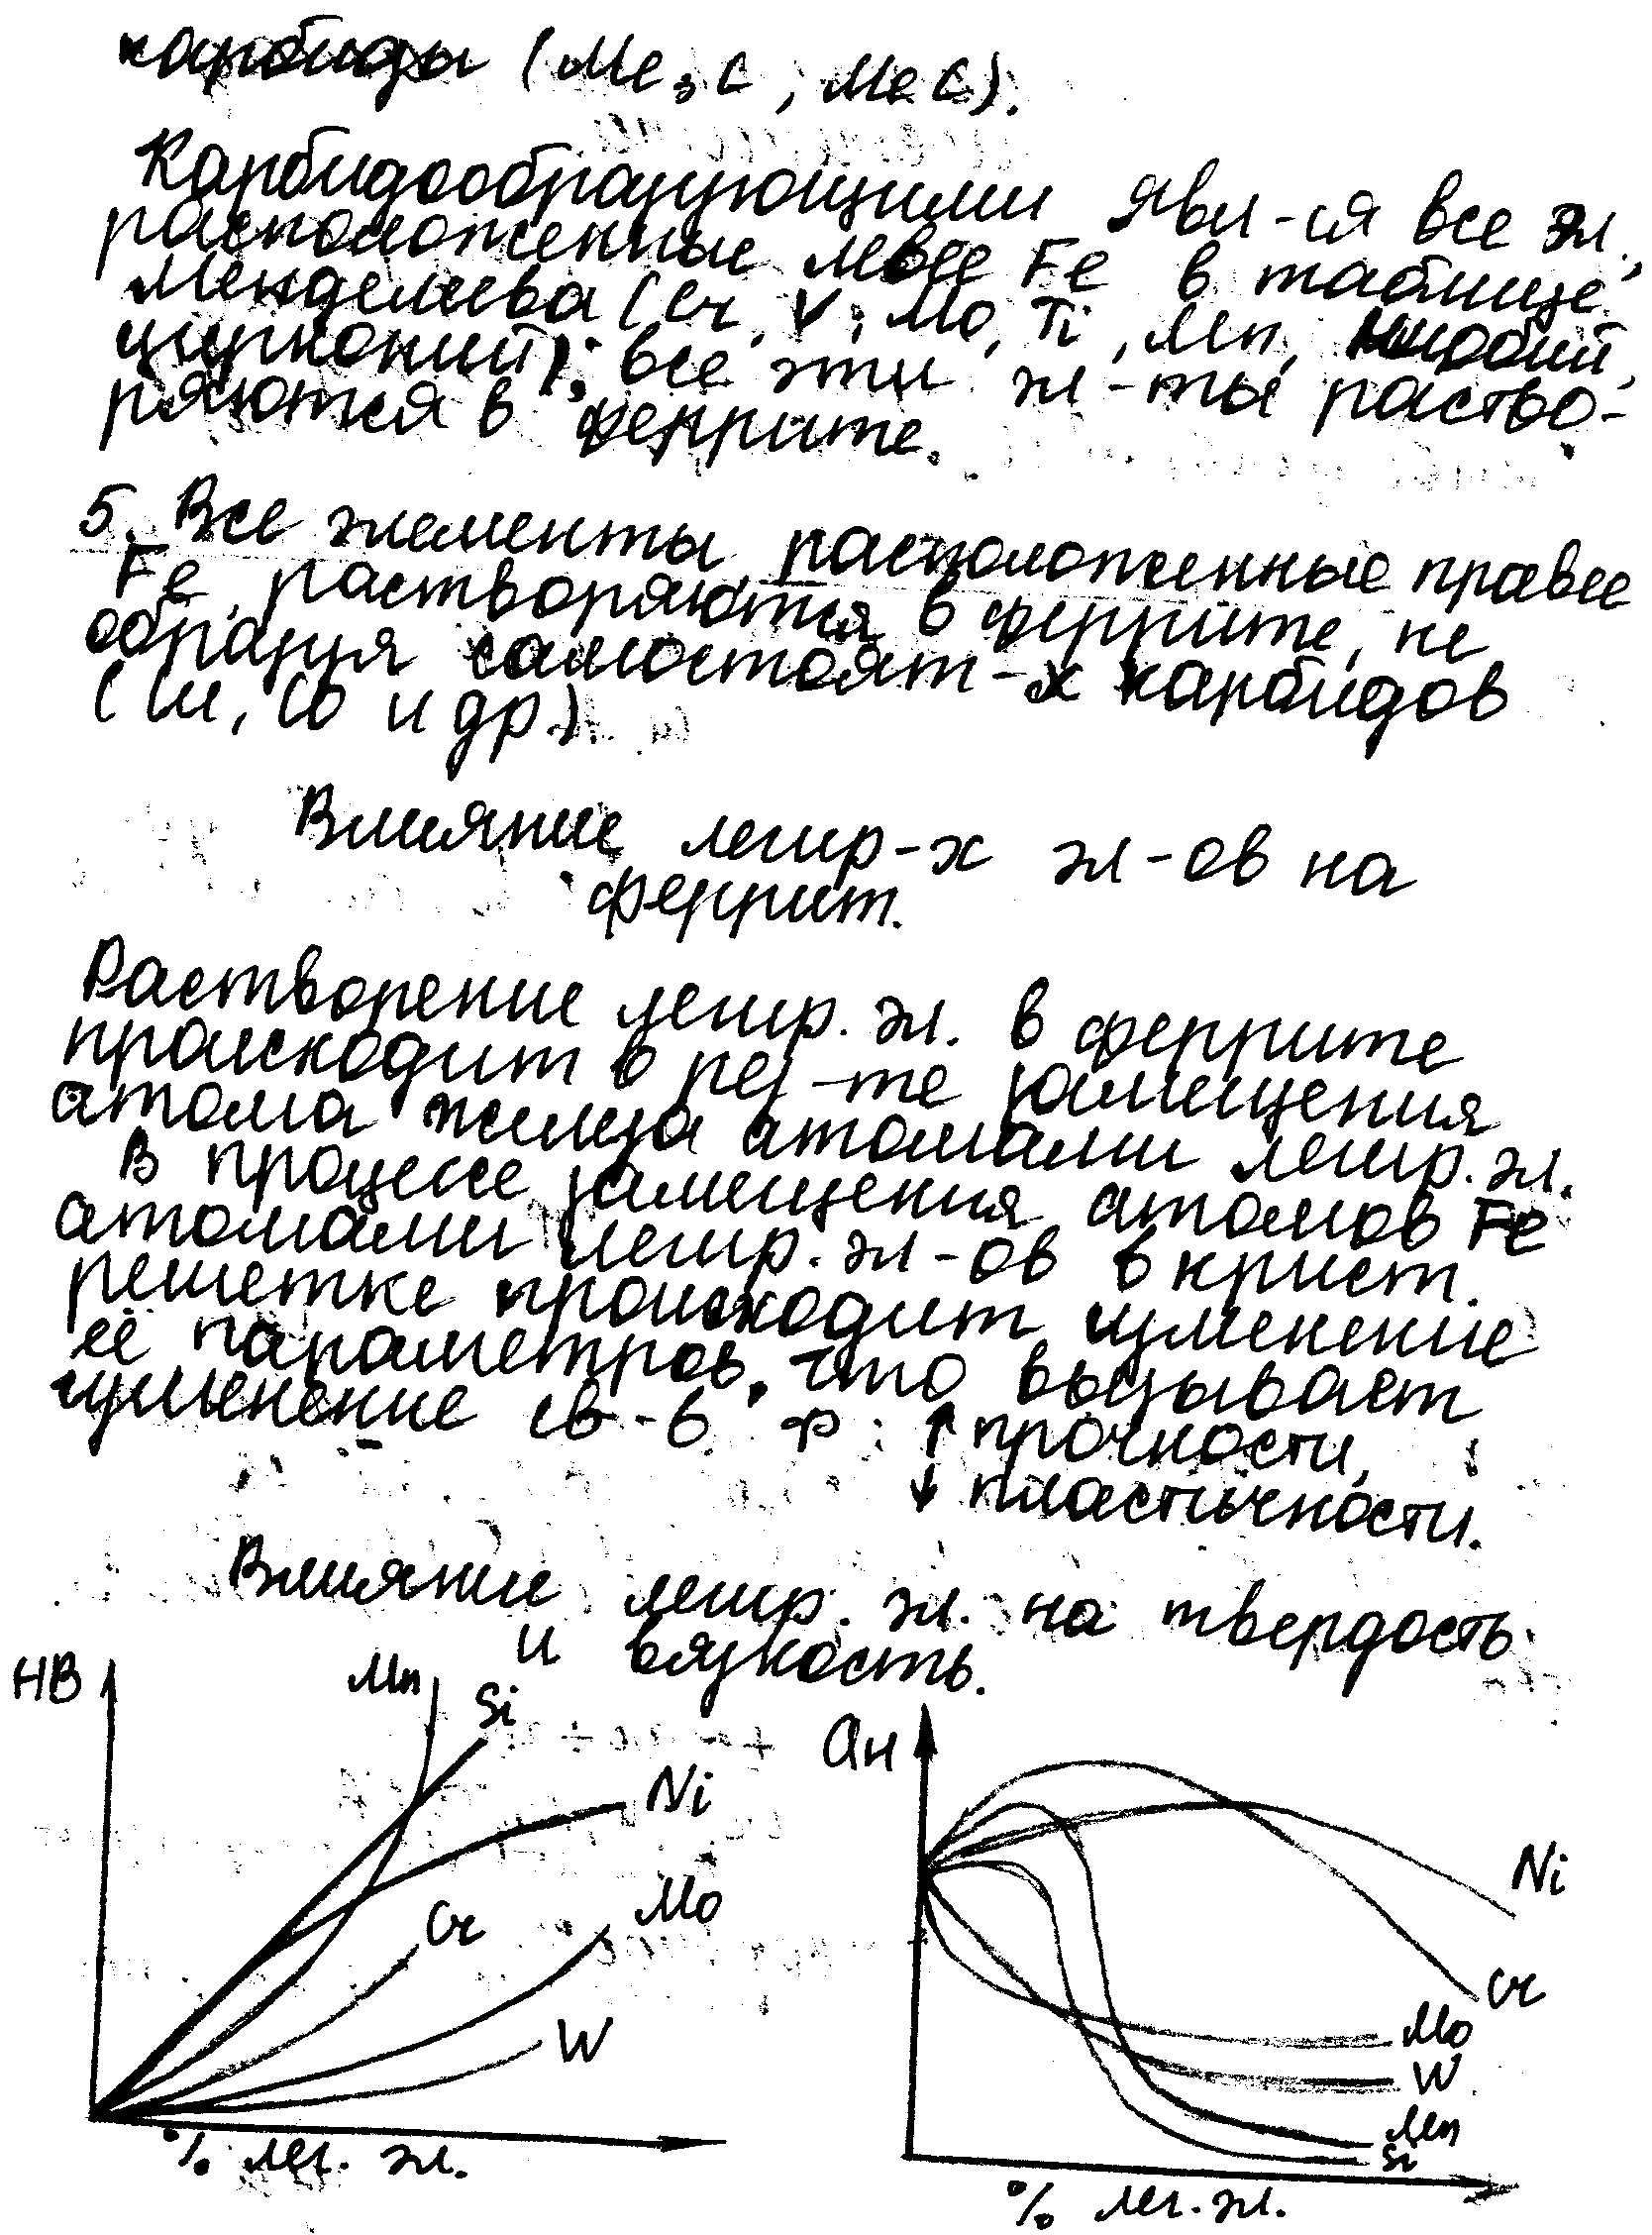 карбиды (Ме₃С, МеС).
Карбидообразующими явл-ся все эл.,
расположенные левее Fe в таблице
Менделеева (Cr, V, Mo, Ti, Mn, ниобий,
цирконий); все эти эл-ты раство-
ряются в феррите.
5. Все элементы, расположенные правее
Fe, растворяются в феррите, не
образуя самостоят-х карбидов
(Ni, Co и др.)
Влияние легир-х эл-ов на
феррит.
Растворение легир. эл. в феррите
происходит в рез-те замещения
атома железа атомами легир. эл.
В процессе замещения атомов Fe
атомами легир. эл-ов в крист.
решетке происходит изменение
её параметров, что вызывает
изменение св-в Ф: ↑ прочности,
↓ пластичности.
Влияние легир. эл. на твердость
и вязкость.
НВ
Mn
Si
Ni
Cr
Mo
W
% лег. эл.
aн
Ni
Cr
Mo
W
Mn
Si
% лег. эл.